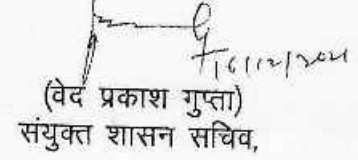 16/12/2021
(वेद प्रकाश गुप्ता)
संयुक्त शासन सचिव,